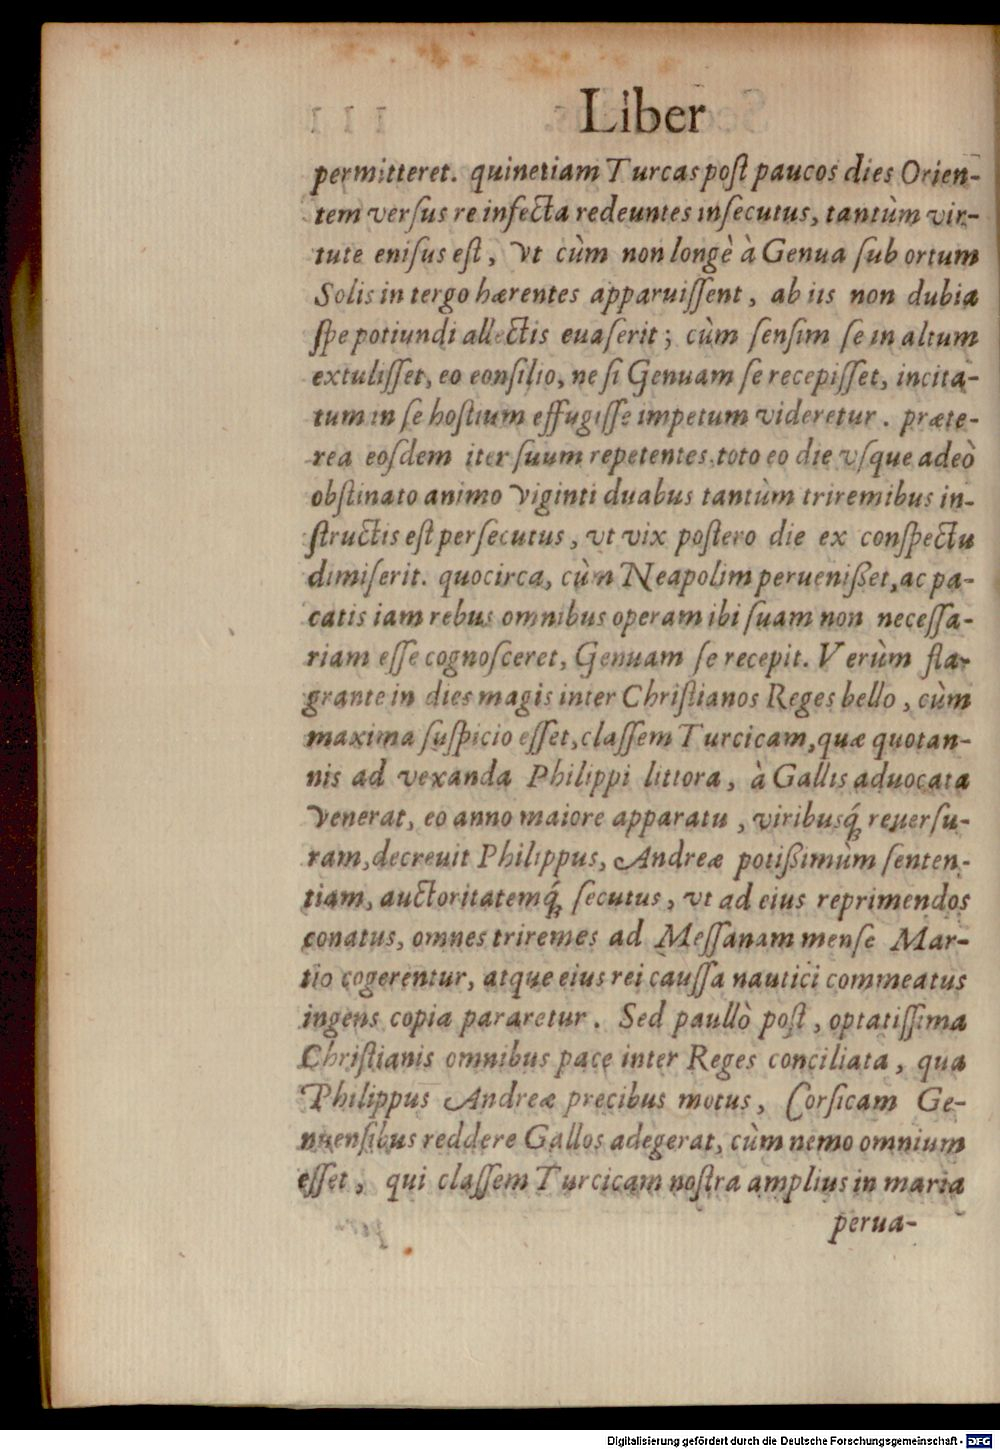 Liber
permitteret. quinetiam Turcas post paucos dies Orien-
tem versus re infecta redeuntes insecutus, tantùm vir-
tute enisus est, vt cùm non longè à Genua sub ortum
Solis in tergo hærentes apparuissent, ab iis non dubia
spe potiundi allectis euaserit; cùm sensim se in altum
extulisset, eo eonsilio, ne si Genuam se recepisset, incita-
tum in se hostium effugisse impetum videretur. præte-
rea eosdem iter suum repetentes toto eo die vsque adeò
obstinato animo viginti duabus tantùm triremibus in-
structis est persecutus, vt vix postero die ex conspectu
dimiserit. quocirca, cùm Neapolim perueniſzet, ac pa-
catis iam rebus omnibus operam ibi suam non necessa-
riam esse cognosceret, Genuam se recepit. Verùm fla-
grante in dies magis inter Christianos Reges bello, cùm
maxima suspicio esset, classem Turcicam, quæ quotan-
nis ad vexanda Philippi littora, à Gallis aduocata
venerat, eo anno maiore apparatu, viribusq́; reuersu-
ram, decreuit Philippus, Andreæ potißimùm senten-
tiam, auctoritatemq́; secutus, vt ad eius reprimendos
conatus, omnes triremes ad Messanam mense Mar-
tio cogerentur, atque eius rei caussa nautici commeatus
ingens copia pararetur. Sed paullò post, optatissima
Christianis omnibus pace inter Reges conciliata, qua
Philippus Andreæ precibus motus, Corsicam Ge-
nuensibus reddere Gallos adegerat, cùm nemo omnium
esset, qui classem Turcicam nostra amplius in maria
perua-
Digitalisierung gefördert durch die Deutsche Forschungsgemeinschaft - DFG